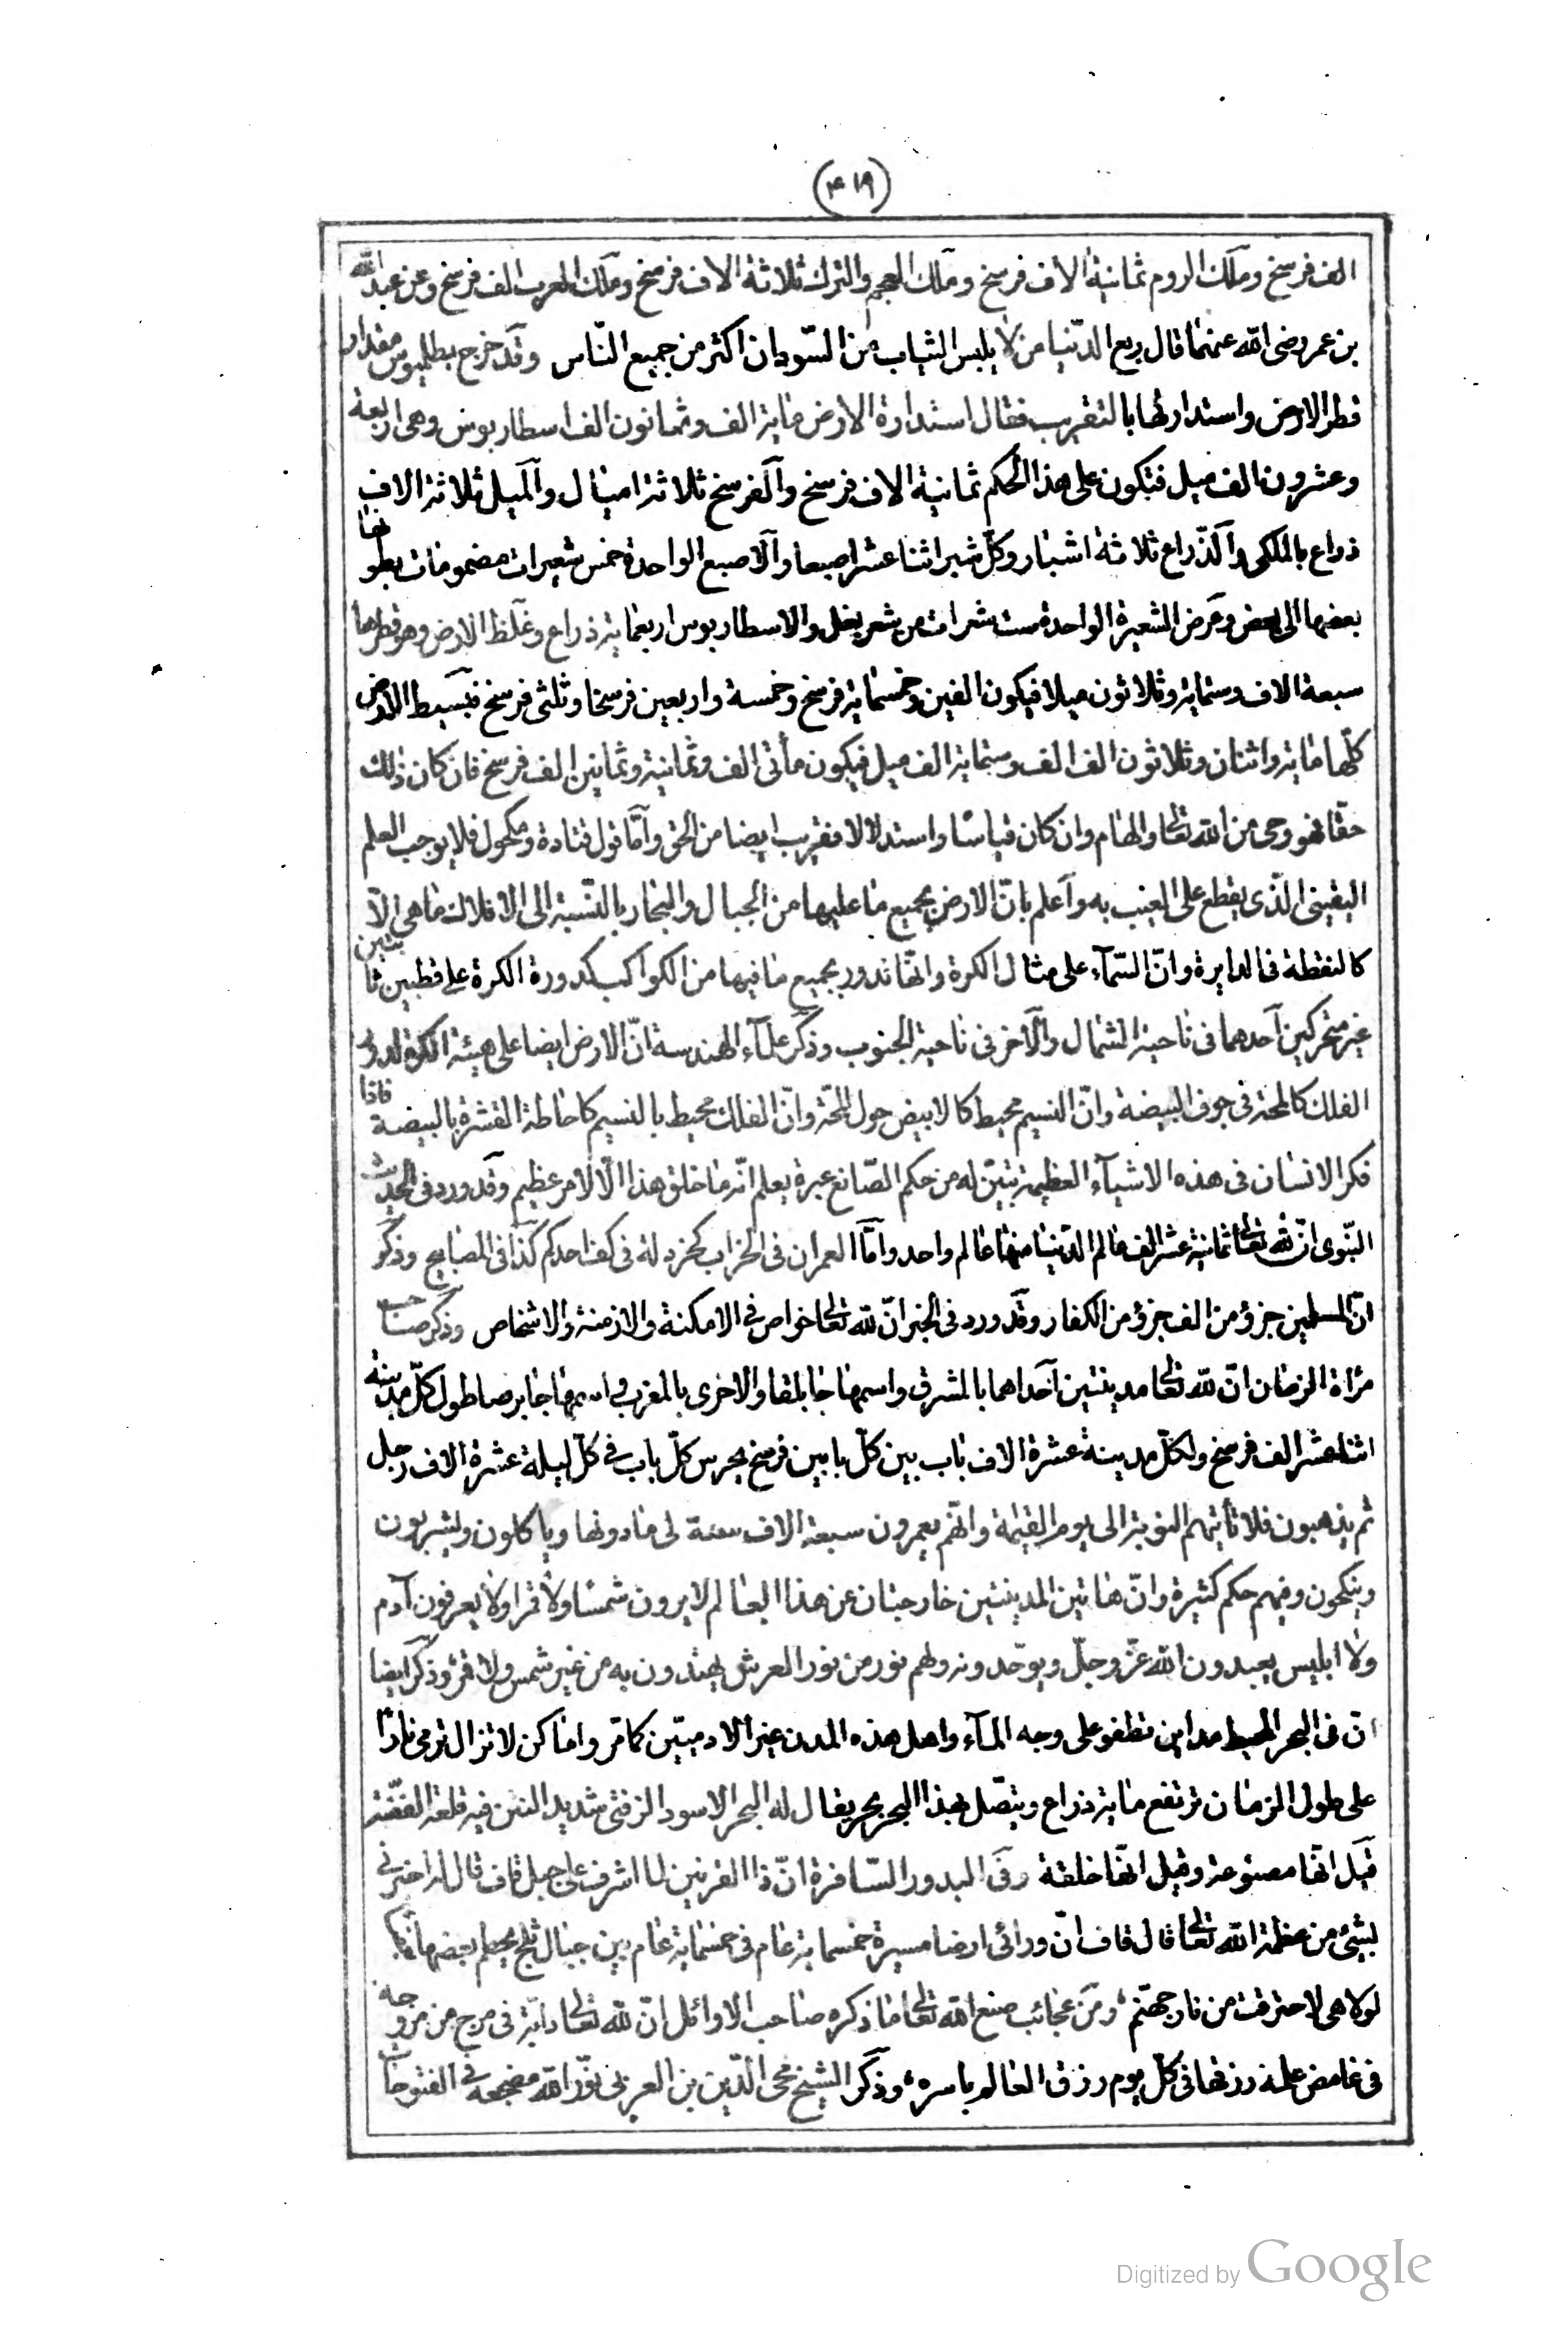 (٤١٩)
الف فرسخ وملك الروم ثمانية الاف فرسخ وملك العجم والترك ثلاثة الاف فرسخ وملك العرب الف فرسخ وعن عبد الله
بن عمر رضى الله عنهما قال ربع الدنيا من لا يلبس الثياب من السودان اكثر من جميع النّاس وقد خرج بطليوس مقدار
قطر الارض واستدارتها بالتقريب فقال استدارة الارض مائة الف وثمانون الف اسطاربوس وهى اربعة
وعشرون الف ميل فتكون على هذا الحكم ثمانية الاف فرسخ والفرسخ ثلاثة اميال والميل ثلاثة الاف
ذراع بالملكى والذّراع ثلاثة اشبار وكلّ شبر اثنا عشر اصبعا والاصبع الواحدة خمس شعيرات مضمومات بطونها
بعضها الى بعض وعرض الشعيرة الواحدة ست شعرات من شعر بغل والاسطاربوس اربعمائة ذراع وغلظ الارض وهو قطرها
سبعة الاف وستمائة وثلاثون ميلا فيكون الفين وخمسمائة فرسخ وخمسة واربعين فرسخا وثلثى فرسخ فبسيط الارض
كلّها مائة واثنان وثلاثون الف الف وستمائة الف ميل فيكون مأتى الف وثمانية وثمانين الف فرسخ فان كان ذلك
حقا فهو وحى من الله تعالى والهام وان كان قياسا واستدلالا فقريب ايضا من الحق وامّا قول قتادة ومكحول فلا يوجب العلم
اليقينى الّذى يقطع على الغيب به واعلم بانّ الارض بجميع ما عليها من الجبال والبحار بالنّسبة الى الافلاك ما هى الّا
كالنقطة فى الدايرة وانّ السّمآء على مثال الكرة وانّها تدور بجميع ما فيها من الكواكب كدورة الكرة على قطبين ثابتين
غير متحركين احدهما فى ناحية الشمال والآخر فى ناحية الجنوب وذكر علمآء الهندسة انّ الارض ايضا على هيئة الكرة لدور
الفلك كالمحة فى جوف البيضة وانّ النسيم محيط كالابيض حول المحّة وانّ الفلك محيط بالنسيم كاحاطة القشرة بالبيضة فاذا
فكر الانسان فى هذه الاشيآء العظيمة تبيّن له من حكم الصّانع عبرة يعلم انّه ما خلق هذا الّا لامر عظيم وقد ورد فى الحديث
النّبوى انّ لله تعالى ثمانية عشر الف عالم الدّنيا منها عالم واحد وامّا العمران فى الخراب كخردلة فى كف احدكم كذا فى المصابيح وذكر
انّ المسلمين جزؤ من الف جزؤ من الكفار وقد ورد فى الخبر انّ لله تعالى خواص فى الامكنة والازمنة والاشخاص وذكر صاحب
مرأة الزمان انّ لله تعالى مدينتين احداهما بالمشرق واسمها جابلقا والاخرى بالمغرب واسمها جابرصا طول كلّ مدينة
اثنا عشر الف فرسخ ولكلّ مدينة عشرة الاف باب بين كلّ بابين فرسخ يحرس كلّ باب فى كلّ ليلة عشرة الاف رجل
ثم يذهبون فلا تأتيهم النوبة الى يوم القيمة وانّهم يعمرون سبعة الاف سنة الى ما دونها وياكلون ويشربون
وينكحون وفيهم حكم كثيرة وانّ هاتين المدينتين خارجتان عن هذا العالم لا يرون شمسا ولا قمرا ولا يعرفون آدم
ولا ابليس يعبدون الله عزّ وجلّ ويوحّدونه ولهم نور من نور العرش يهتدون به من غير شمس ولا قمر وذكر ايضا
انّ فى البحر المحيط مداين تطفو على وجه المآء واهل هذه المدن غير الادميّين كما مرّ واماكن لا تزال ترمى نارا
على طول الزمان ترتفع مائة ذراع ويتّصل بهذا البحر بحر يقال له البحر الاسود الزفتى شديد النتن فيه قلعة الفضّة
قيل انّها مصنوعة وقيل انّها خلقة وفى البدور السّافرة انّ ذا القرنين لما اشرف على جبل قاف قال له اخبرنى
بشئ من عظمة الله تعالى قال قاف انّ ورائى ارضا مسيرة خمسماية عام فى خمسماية عام بين جبال ثلج يحطم بعضها بعضا
لولا هى لاحترقت من نار جهنّم ومن عجائب صنع الله تعالى ما ذكره صاحب الاوائل انّ لله تعالى دابّة فى مرج من مروجه
فى غامض علمه رزقها فى كلّ يوم رزق العالم باسره وذكر الشيخ محى الدّين بن العربى نوّر الله مضجعه فى الفتوحات
Digitized by Google